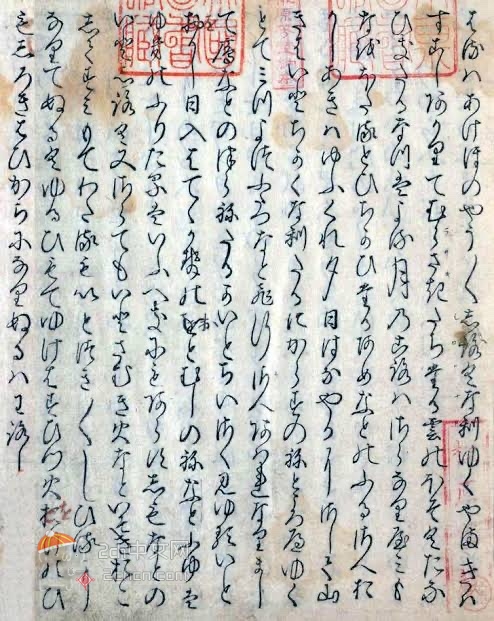 はるはあけほのやう／＼しろくなりゆくやまきは
すこしあかりてむらさきたちたる雲のほそくたな
ひきたるなつはよる月のころはさらなりやみも
なをほたるとひちかひたるあめなとのふるさへお
かしあきはゆふくれ夕日はなやかにさして山
きはいとちかくなりたるにからすのねところへゆく
とて三つよつふたつなと飛行さへあはれなりまし
て雁なとのつらねたるかいとちいさく見ゆるいと
おかし日入はてゝ風のをとむしのねなとふゆは
ゆきのふりたるはいふへきにもあらすしもなとの
いとしろく又さらてもいとさむき火なといそきおこ
してすみもてわたるもいとつき／＼しひるに
なりてぬるくゆるひもてゆけはすひつ火おけのひ
もしろきはひかちになりぬるはわろし